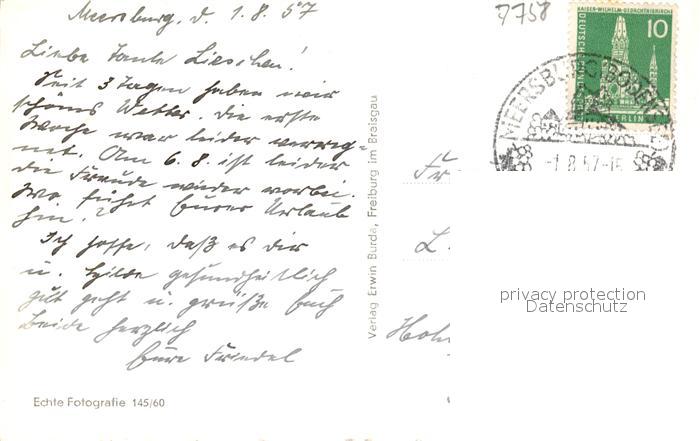 Meersburg, d. 1.8.57
7758
Liebe Tante Lieschen!
Seit 3 Tagen haben wir
schönes Wetter. Die erste
Woche war leider verreg=
net. Am 6.8. ist leider
die Freude wieder vorbei.
Wo führt Eurer Urlaub
hin?
Ich hoffe, daß es dir
u. Hilde gesundheitlich
gut geht u. grüße Euch
beide herzlich
Eure Friedel
Echte Fotografie 145/60
Verlag Erwin Burda, Freiburg im Breisgau
KAISER-WILHELM-GEDÄCHTNISKIRCHE
10
DEUTSCHE BUNDESPOST
BERLIN
MEERSBURG (BODENSEE)
-1.8.57-15
Fr
L.
Hoh
privacy protection
Datenschutz